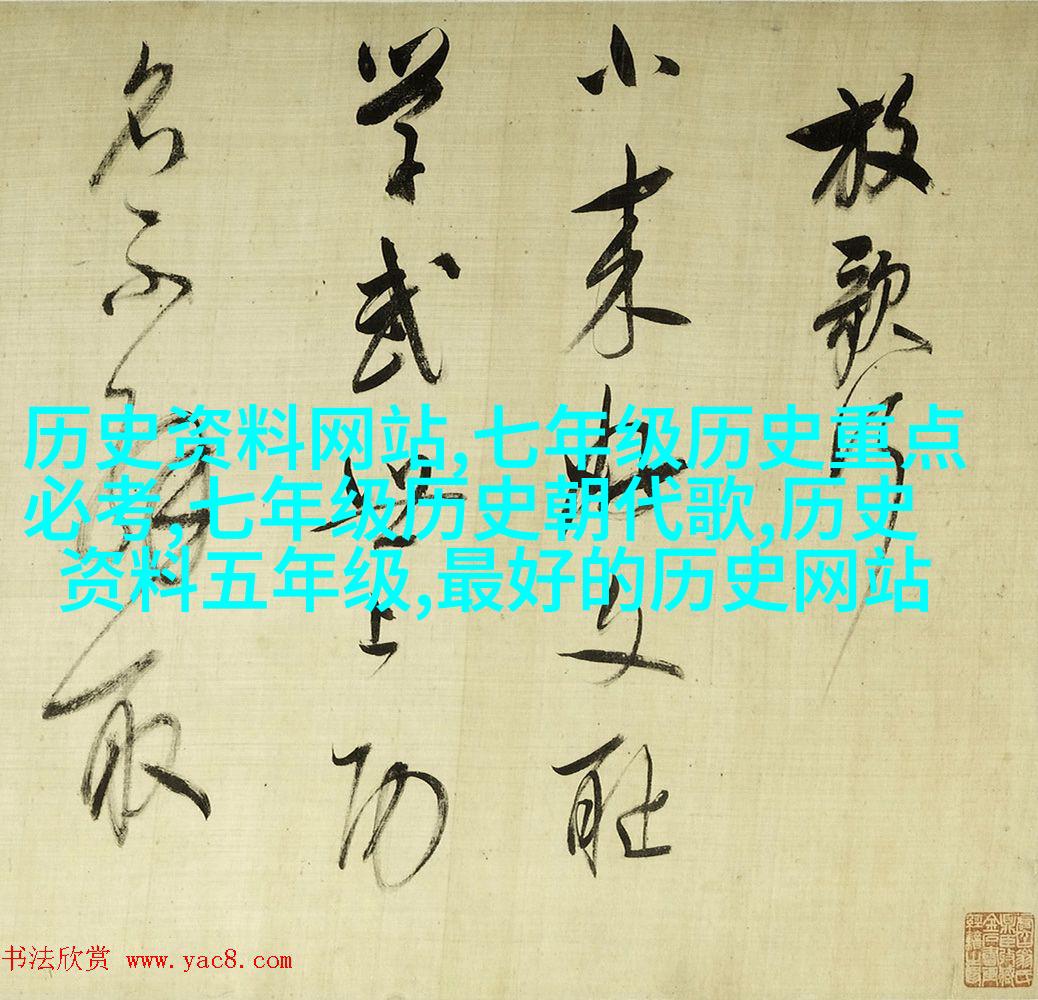 放歌行
小来好文耻
学武世上功
名不解取
历史资料网站,七年级历史重点
必考,七年级历史朝代歌,历史
资料五年级,最好的历史网站
书法欣赏 www.yac8.com